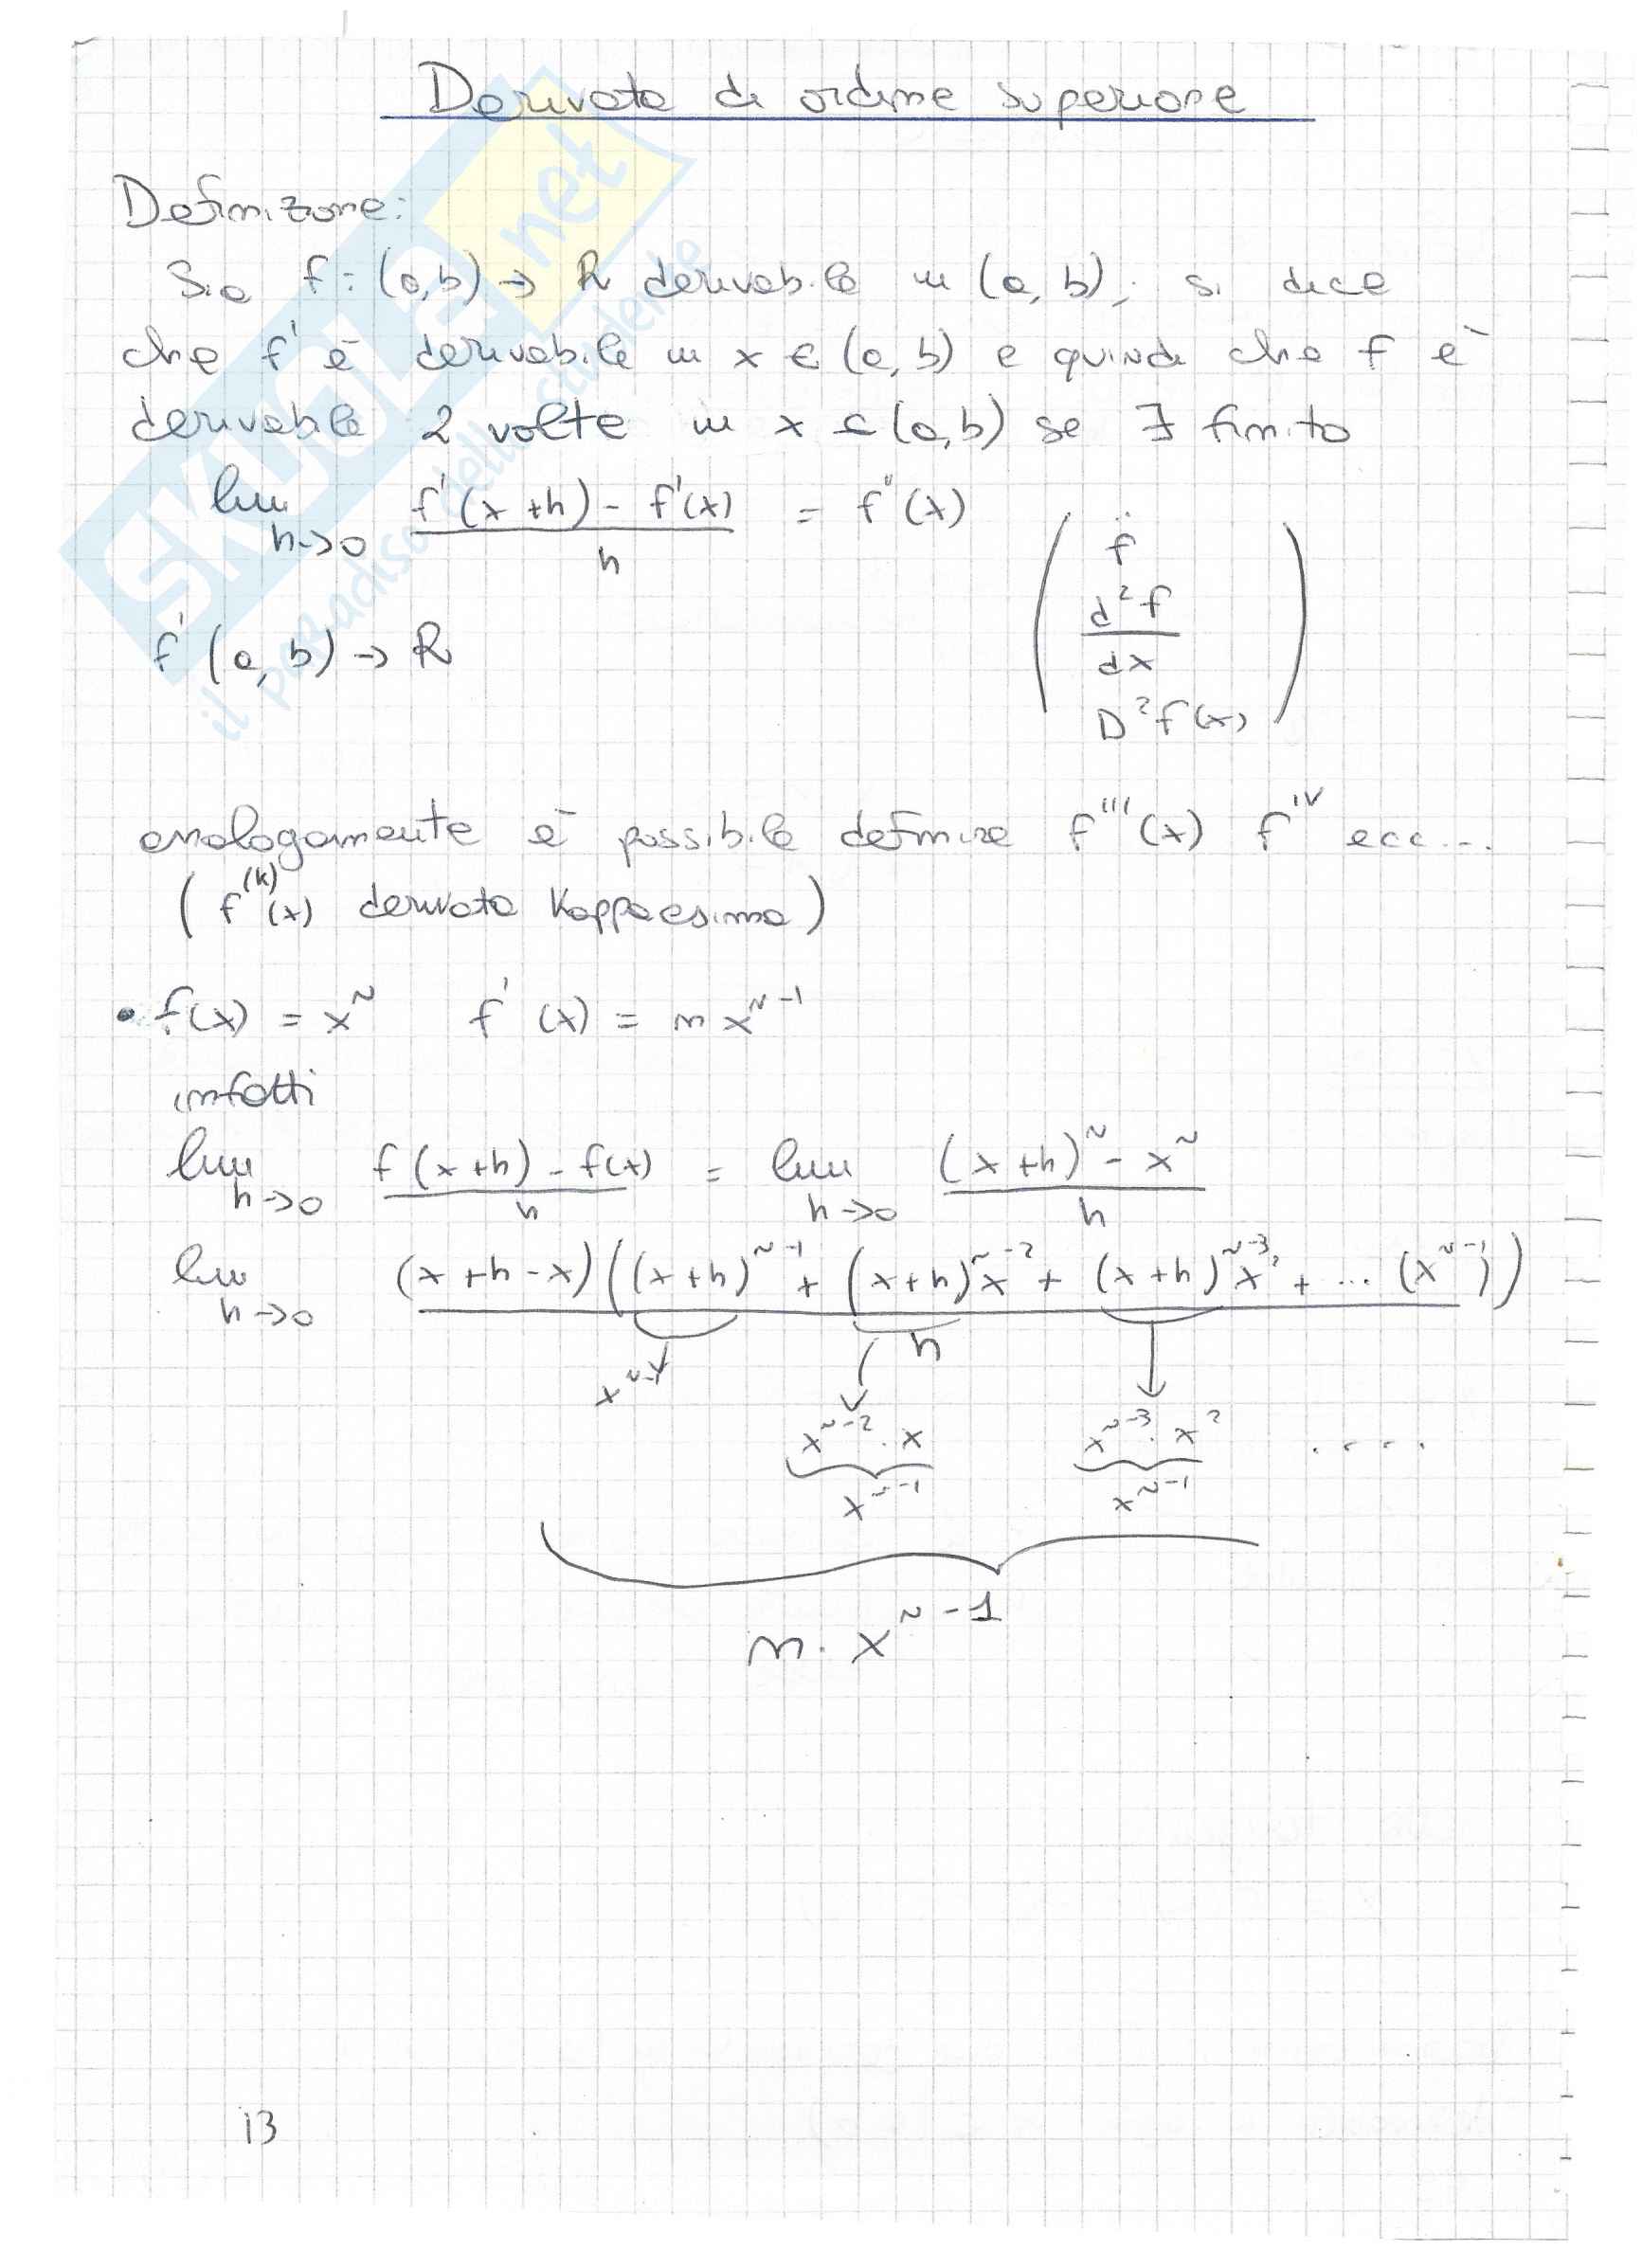 Derivata di ordine superiore
Definizione:
Sia f: (a,b) → R derivabile in (a,b); si dice
che f' è derivabile in x ∈ (a,b) e quindi che f è
derivabile 2 volte in x ∈ (a,b) se ∃ finito
lim h→0 (f'(x+h) - f'(x))/h = f''(x)
( f̈
d²f/dx
D²f(x) )
f' (a,b) → R
analogamente è possibile definire f'''(x) f^IV ecc...
( f^(k)(x) derivata Kappaesima )
• f(x) = x^n f'(x) = n x^(n-1)
infatti
lim h→0 (f(x+h) - f(x))/h = lim h→0 ((x+h)^n - x^n)/h
lim h→0 (x+h-x)((x+h)^(n-1) + (x+h)^(n-2) x + (x+h)^(n-3) x² + ... (x^(n-1)))/h
x^(n-1)
x^(n-2) · x x^(n-3) · x² ....
x^(n-1) x^(n-1)
n · x^(n-1)
13
SKUOLA.net
il paradiso dello studente